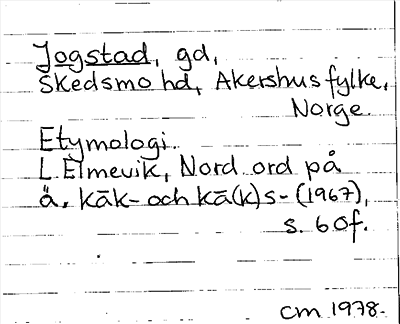 Jogstad, gd,
Skedsmo hd, Akershus fylke,
Norge.
Etymologi.
L Elmevik, Nord. ord på
ä. kāk- och kā(k)s- (1967),
s. 60f.
cm 1978.